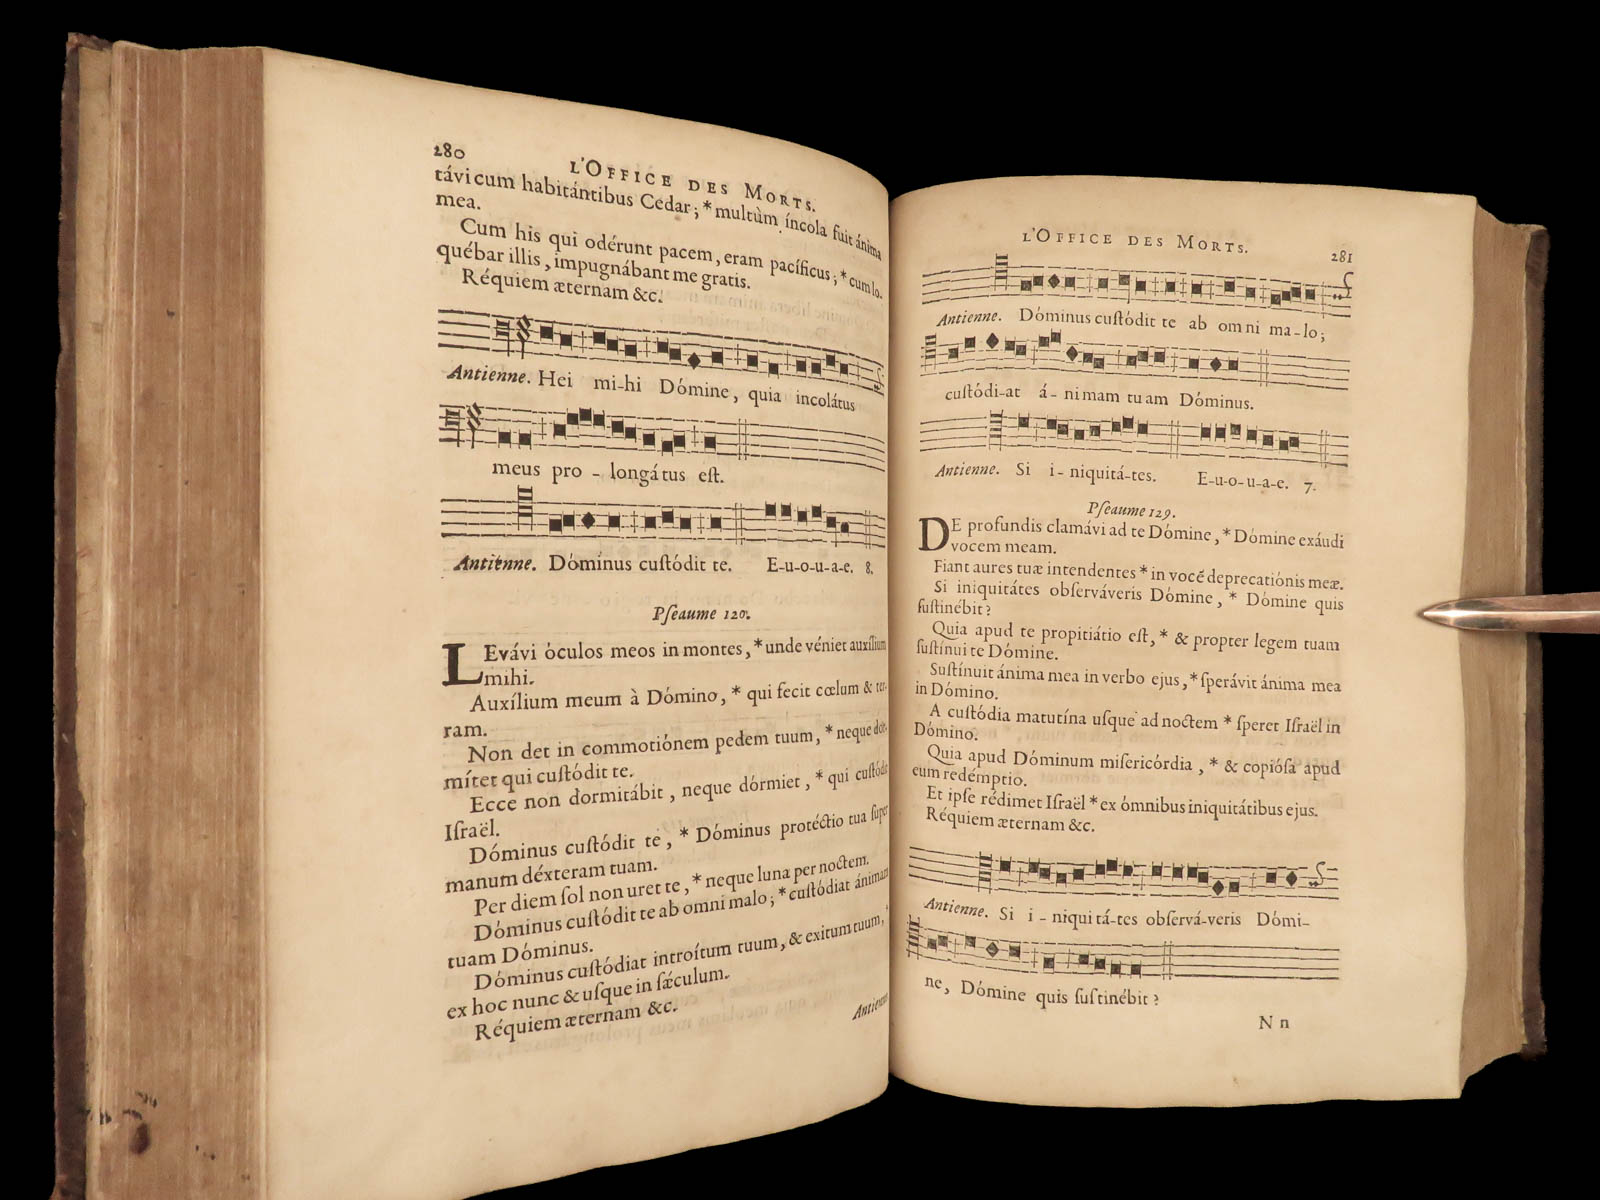 280
L'OFFICE DES MORTS.
távi cum habitántibus Cedar; * multùm íncola fuit ánima
mea.
Cum his qui odérunt pacem, eram pacíficus; * cum lo-
québar illis, impugnábant me gratis.
Réquiem æternam &c.
Antienne. Hei mi-hi Dómine, quia incolátus
meus pro - longátus eſt.
Antienne. Dóminus cuſtódit te. E-u-o-u-a-e. 8.
Pſeaume 120.
LEvávi óculos meos in montes, * unde véniet auxílium
mihi.
Auxílium meum à Dómino, * qui fecit cœlum & ter-
ram.
Non det in commotiónem pedem tuum, * neque dor-
mítet qui cuſtódit te.
Ecce non dormitábit, neque dórmiet, * qui cuſtódit
Iſraël.
Dóminus cuſtódit te, * Dóminus protéctio tua ſuper
manum déxteram tuam.
Per diem ſol non uret te, * neque luna per noctem.
Dóminus cuſtódit te ab omni malo; * cuſtódiat ánimam
tuam Dóminus.
Dóminus cuſtódiat introítum tuum, & exitum tuum, *
ex hoc nunc & uſque in ſæculum.
Réquiem æternam &c.
Antienne
L'OFFICE DES MORTS.
281
Antienne. Dóminus cuſtódit te ab omni ma-lo;
cuſtódi-at á-nimam tuam Dóminus.
Antienne. Si i-niquitá-tes. E-u-o-u-a-e. 7.
Pſeaume 129.
DE profundis clamávi ad te Dómine, * Dómine exáudi
vocem meam.
Fiant aures tuæ intendentes * in vocé deprecatiónis meæ.
Si iniquitátes obſerváveris Dómine, * Dómine quis
ſuſtinébit?
Quia apud te propitiátio eſt, * & propter legem tuam
ſuſtínui te Dómine.
Suſtínuit ánima mea in verbo ejus, * ſperávit ánima mea
in Dómino.
A cuſtódia matutína uſque ad noctem * ſperet Iſraël in
Dómino.
Quia apud Dóminum miſericórdia, * & copióſa apud
eum redémptio.
Et ipſe rédimet Iſraël * ex ómnibus iniquitátibus ejus.
Réquiem æternam &c.
Antienne. Si i-niquitá-tes obſervá-veris Dómi-
ne, Dómine quis ſuſtinébit?
N n